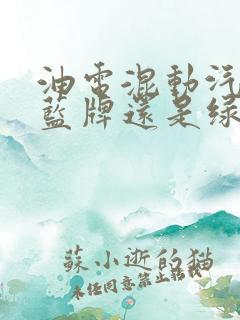 油電混動汽
藍牌還是綠
蘇小逝的貓
未经同意禁止转载